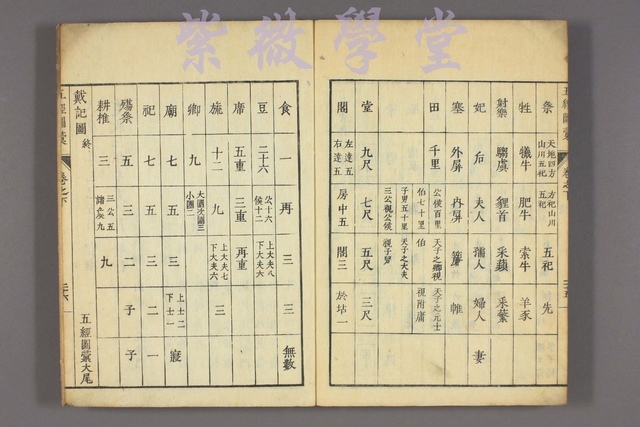 紫微學堂
五經圖彙 卷之下
祭 天地四方山川五祀 方祀山川五祀 五祀 先
牲 犧牛 肥牛 索牛 羊豕
射樂 騶虞 貍首 采蘋 采蘩
妃 后 夫人 孺人 婦人 妻
塞 外屏 內屏 簾 帷
田 千里 公侯百里 伯七十里 子男五十里 三公視公侯 天子之卿視伯 天子之大夫視子男 天子之元士視附庸
堂 九尺 七尺 五尺 三尺
閣 左達五 右達五 房中五 閣三 於坫一
食 一 再 三 三 無數
豆 二十六 公十六 侯十二 上大夫八 下大夫六
席 五重 三重 再重
旒 十二 九 上大夫七 下大夫六 三
卿 九 大國次國三 小國二
廟 七 五 三 上士二 下士一 寢
祀 七 五 三 二 一
殤祭 五 三 二 子 子
耕推 三 三公五 諸侯九 九
戴記圖 終
五經圖彙大尾
五經圖彙 卷之下